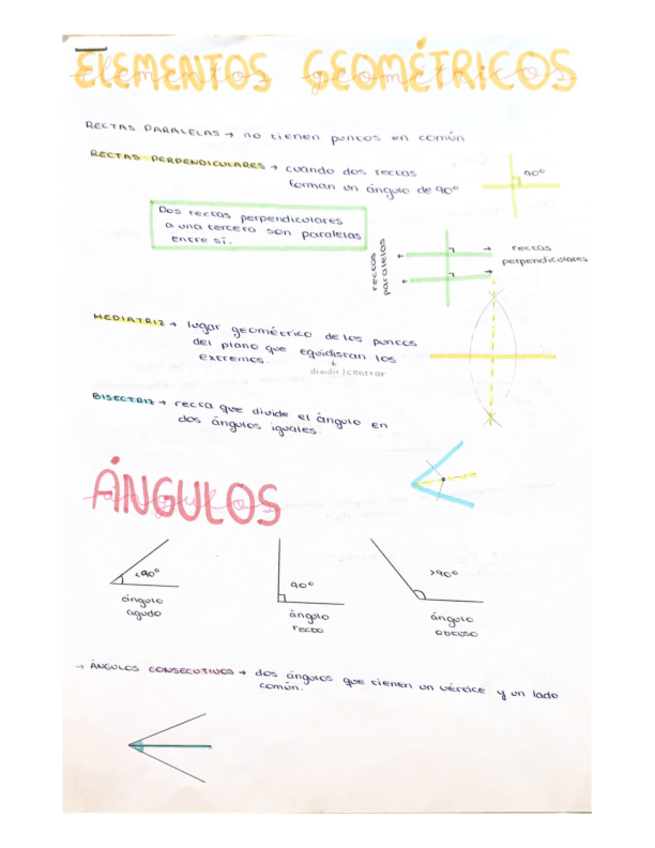 ELEMENTOS GEOMÉTRICOS
elementos geométricos
RECTAS PARALELAS → no tienen puntos en común
RECTAS PERPENDICULARES → cuando dos rectas
forman un ángulo de 90º
90º
Dos rectas perpendiculares
a una tercera son paralelas
entre sí.
rectas
paralelas
rectas
perpendiculares
MEDIATRIZ → lugar geométrico de los puntos
del plano que equidistan los
extremos.
dividir/centrar
BISECTRIZ → recta que divide el ángulo en
dos ángulos iguales.
ÁNGULOS
ángulos
<90º
ángulo
agudo
90º
ángulo
recto
>90º
ángulo
obtuso
→ ÁNGULOS CONSECUTIVOS → dos ángulos que tienen un vértice y un lado
común.